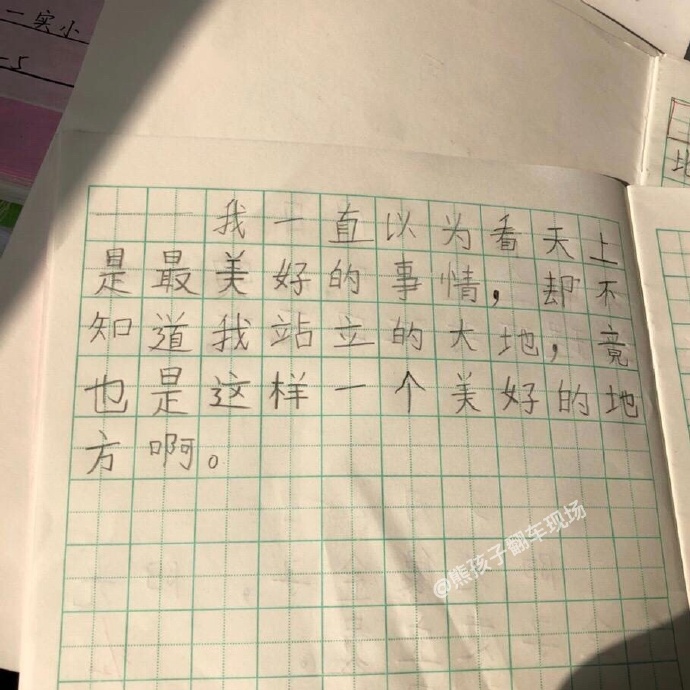 一实小
我一直以为看天上
是最美好的事情，却不
知道我站立的大地，竟
也是这样一个美好的地
方啊。
@熊孩子翻车现场